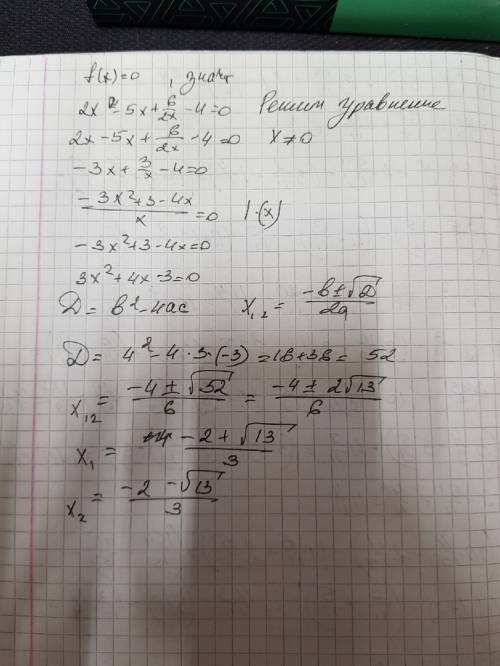 f(x)=0 , значит
2x² - 5x + 6/2x - 4 = 0 Решим уравнение
2x - 5x + 6/2x - 4 = 0 x ≠ 0
-3x + 3/x - 4 = 0
(-3x² + 3 - 4x)/x = 0 | ·(x)
-3x² + 3 - 4x = 0
3x² + 4x - 3 = 0
D = b² - 4ac x₁,₂ = (-b ± √D)/2a
D = 4² - 4 · 3 · (-3) = 16 + 36 = 52
x₁₂ = (-4 ± √52)/6 = (-4 ± 2√13)/6
x₁ = (-2 + √13)/3
x₂ = (-2 - √13)/3